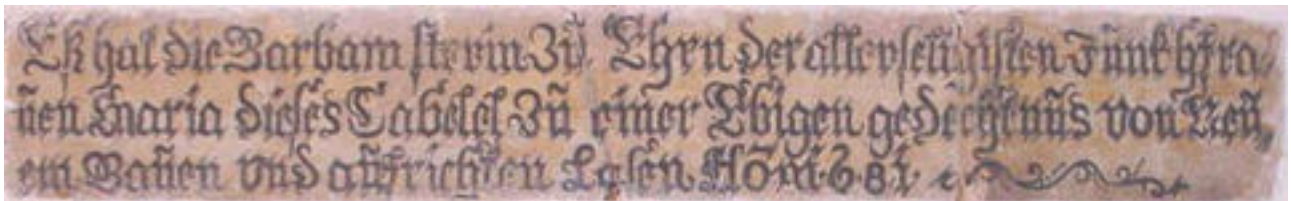 Eß hat die Barbara sterin Zů Ehrn der allerseligisten Junkhfra//
ůen Maria dieses Cabelel Zů einer Ebigen gedechtnůs von Neů//
em Baůen vnd aůfrichten Lasen